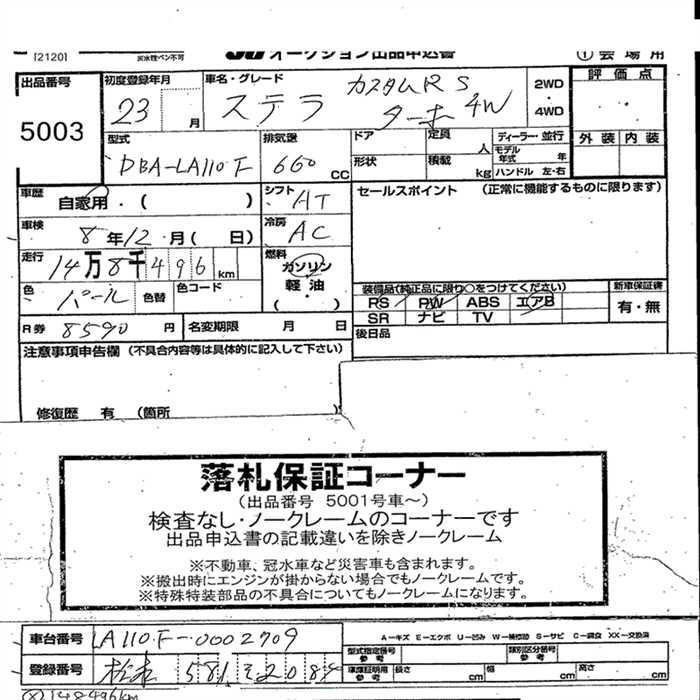 [2120]
水性ペン不可
JU オークション出品申込書
① 会場用
出品番号
5003
初度登録年月
23 月
車名・グレード
ステラ カスタムRS
ターボ 4W
2WD
・
4WD
評価点
外装 内装
型式
DBA-LA110F
排気量
660 CC
ドア
形状
定員 人
積載 kg
ディーラー・並行
モデル年式 年
ハンドル 左・右
車歴
自家用・( )
シフト
AT
セールスポイント (正常に機能するものに限ります)
車検
8年12月( 日)
冷房
AC
走行
14万8千496km
燃料
ガソリン
軽油
( ・ )
色
パール
色替
色コード
装備品(純正品に限り○をつけてください)
新車保証書
RS PW ABS エアB
SR ナビ TV
有・無
R券 8590 円
名変期限 月 日
後日品
注意事項申告欄 (不具合内容等は具体的に記入して下さい)
修復歴 有 (箇所 )
落札保証コーナー
(出品番号 5001号車~)
検査なし・ノークレームのコーナーです
出品申込書の記載違いを除きノークレーム
※不動車、冠水車など災害車も含まれます。
※搬出時にエンジンが掛からない場合でもノークレームです。
※特殊特装部品の不具合についてもノークレームになります。
A-キズ E-エクボ U-凹み W-補修跡 S-サビ C-腐食 XX-交換済
車台番号 LA110F-0002709
型式指定番号
参考
類別区分番号
参考
登録番号
581 2084
車庫証明用
参考
長さ cm
幅 cm
高さ cm
148496km